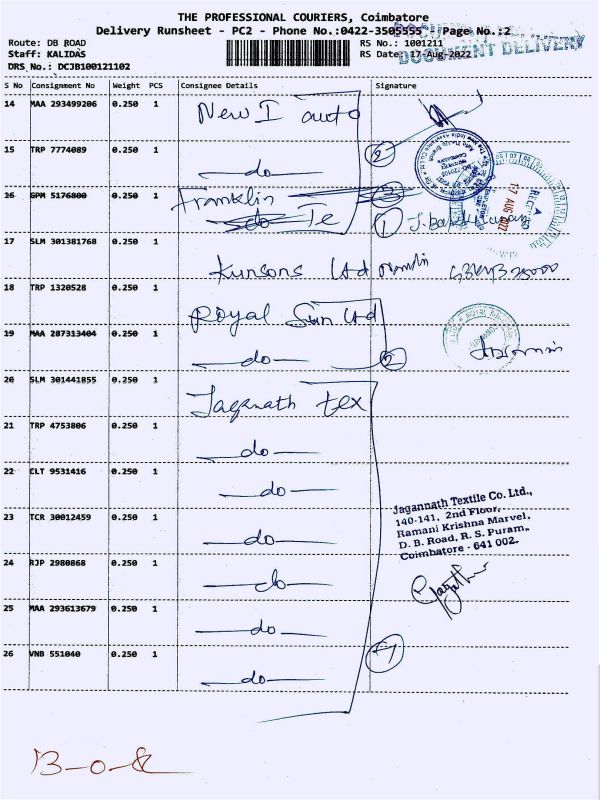 THE PROFESSIONAL COURIERS, Coimbatore
Delivery Runsheet - PC2 - Phone No.:0422-3505555 Page No.:2
Route: DB ROAD RS No.: 1001211
Staff: KALIDAS RS Date: 17-Aug-2022
DOCUMENT DELIVERY
DRS No.: DCJB100121102
S No Consignment No Weight PCS Consignee Details Signature
14 MAA 293499206 0.250 1 New I auto
15 TRP 7774089 0.250 1 do 2
16 GPM 5176800 0.250 1 Franklin Te 1
RECE
17 AUG 2022
17 SLM 301381768 0.250 1 Kunsons Ltd
18 TRP 1320528 0.250 1 Royal Sun Ltd
19 MAA 287313404 0.250 1 do 2
20 SLM 301441855 0.250 1 Jaganath tex
21 TRP 4753806 0.250 1 do
22 CLT 9531416 0.250 1 do
23 TCR 30012459 0.250 1 do
Jagannath Textile Co. Ltd.,
140-141, 2nd Floor,
Ramani Krishna Marvel,
D. B. Road, R. S. Puram,
Coimbatore - 641 002.
24 RJP 2980868 0.250 1 do
25 MAA 293613679 0.250 1 do
26 VNB 551040 0.250 1 do 7